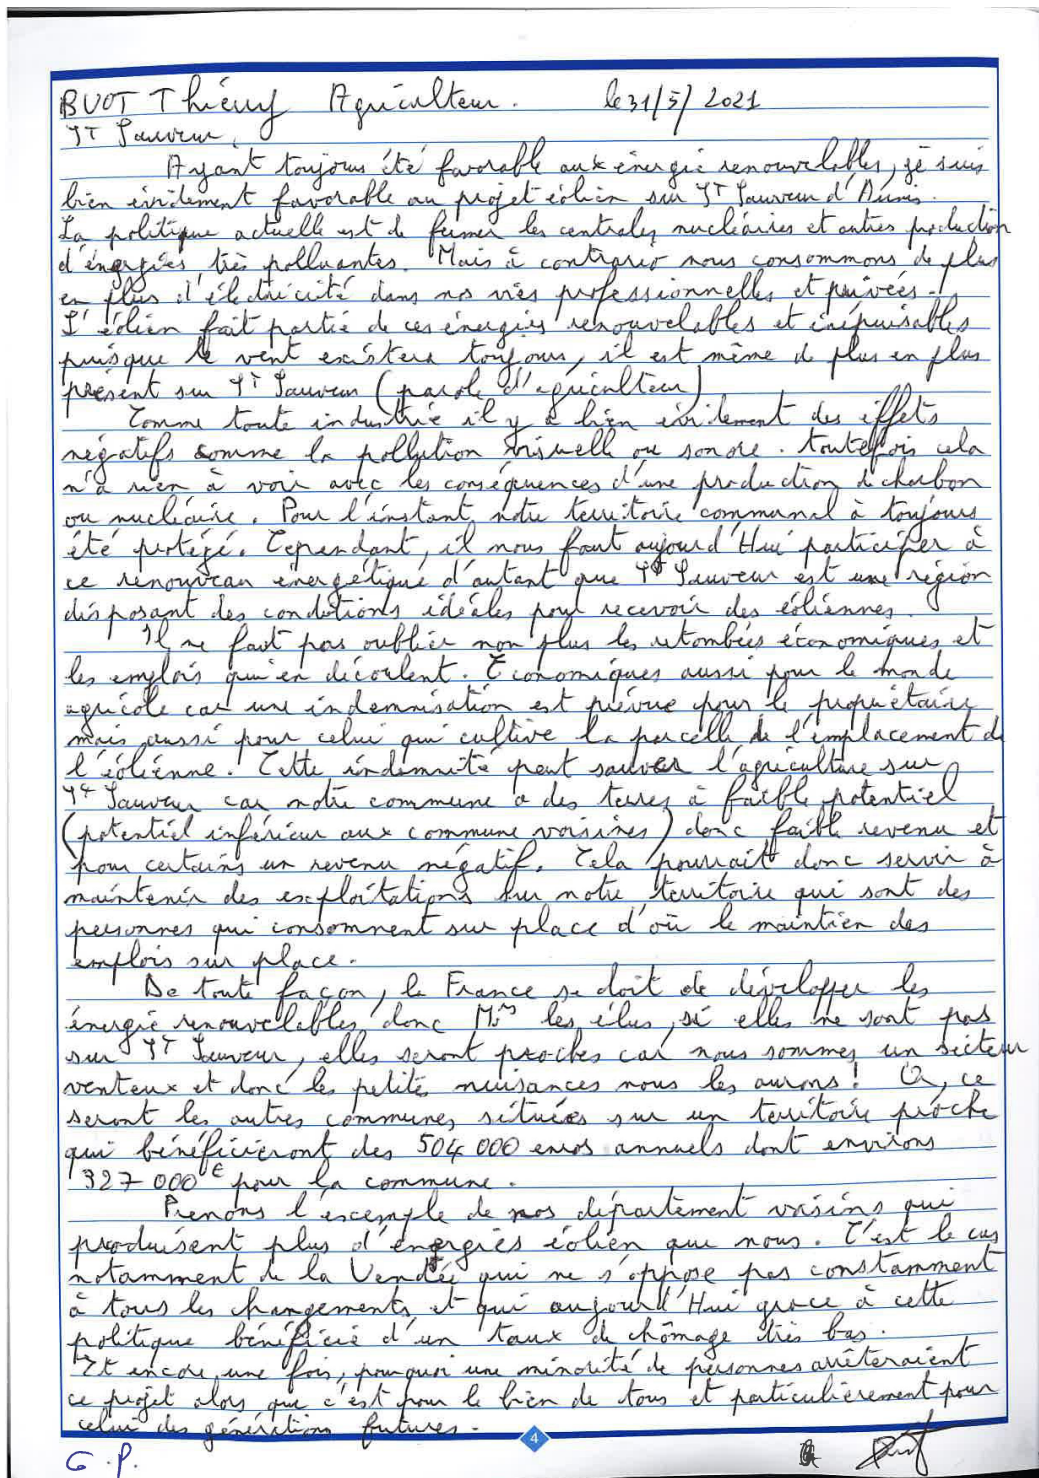 BUOT Thierry Agriculteur. le 31/5/2021
St Sauveur,
Ayant toujours été favorable aux énergie renouvelables, je suis
bien évidement favorable au projet éolien sur St Sauveur d'Aunis.
La politique actuelle est de fermer les centrales nucléaires et autres production
d'énergies très polluantes. Mais à contrario nous consommons de plus
en plus d'électricité dans nos vies professionnelles et privées.
L'éolien fait partie de ces énergies renouvelables et inépuisables
puisque le vent existera toujours, il est même de plus en plus
présent sur St Sauveur (parole d'agriculteur)
Comme toute industrie il y a bien évidement des effets
négatifs comme la pollution visuelle ou sonore. toutefois cela
n'a rien à voir avec les conséquences d'une production de charbon
ou nucléaire. Pour l'instant notre territoire communal à toujours
été protégé. Cependant, il nous faut aujourd'Hui participer à
ce renouveau énergétique d'autant que St Sauveur est une région
disposant des conditions idéales pour recevoir des éoliennes.
Il ne faut pas oublier non plus les retombées économiques et
les emplois qui en découlent. Economiques aussi pour le monde
agricole car une indemnisation est prévue pour le propriétaire
mais aussi pour celui qui cultive la parcelle de l'emplacement de
l'éolienne. Cette indemnité peut sauver l'agriculture sur
St Sauveur car notre commune a des terres à faible potentiel
(potentiel inférieur aux commune voisines) donc faible revenu et
pour certains un revenu négatif. Cela pourrait donc servir à
maintenir des exploitations sur notre territoire qui sont des
personnes qui consomment sur place d'où le maintien des
emplois sur place.
De toute façon, la France se doit de développer les
énergie renouvelables donc Mrs les élus, si elles ne sont pas
sur St Sauveur, elles seront proches car nous sommes un secteur
venteux et donc les petites nuisances nous les aurons! Or, ce
seront les autres communes situées sur un territoire proche
qui bénéficieront des 504 000 euros annuels dont environs
327 000 € pour la commune.
Prenons l'exemple de nos département voisins qui
produisent plus d'énergies éolien que nous. C'est le cas
notamment de la Vendée qui ne s'oppose pas constamment
à tous les changements et qui aujourd'Hui grace à cette
politique bénéficie d'un taux de chômage très bas.
Et encore une fois, pourquoi une minorité de personnes arrêteraient
ce projet alors que c'est pour le bien de tous et particulièrement pour
celui des générations futures.
4
G.P.